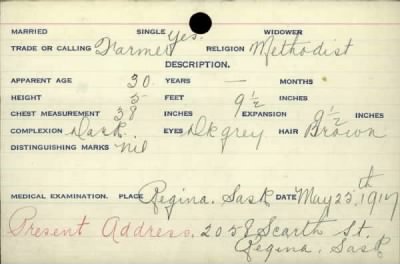 MARRIED SINGLE Yes. WIDOWER
TRADE OR CALLING Farmer RELIGION Methodist
DESCRIPTION.
APPARENT AGE 30 YEARS — MONTHS
HEIGHT 5 FEET 9 1/2 INCHES
CHEST MEASUREMENT 38 INCHES EXPANSION 9 1/2 INCHES
COMPLEXION Dark. EYES Dk grey HAIR Brown
DISTINGUISHING MARKS nil
MEDICAL EXAMINATION. PLACE Regina. Sask DATE May 25th, 1917
Present Address. 2058 Scarth St.
Regina, Sask